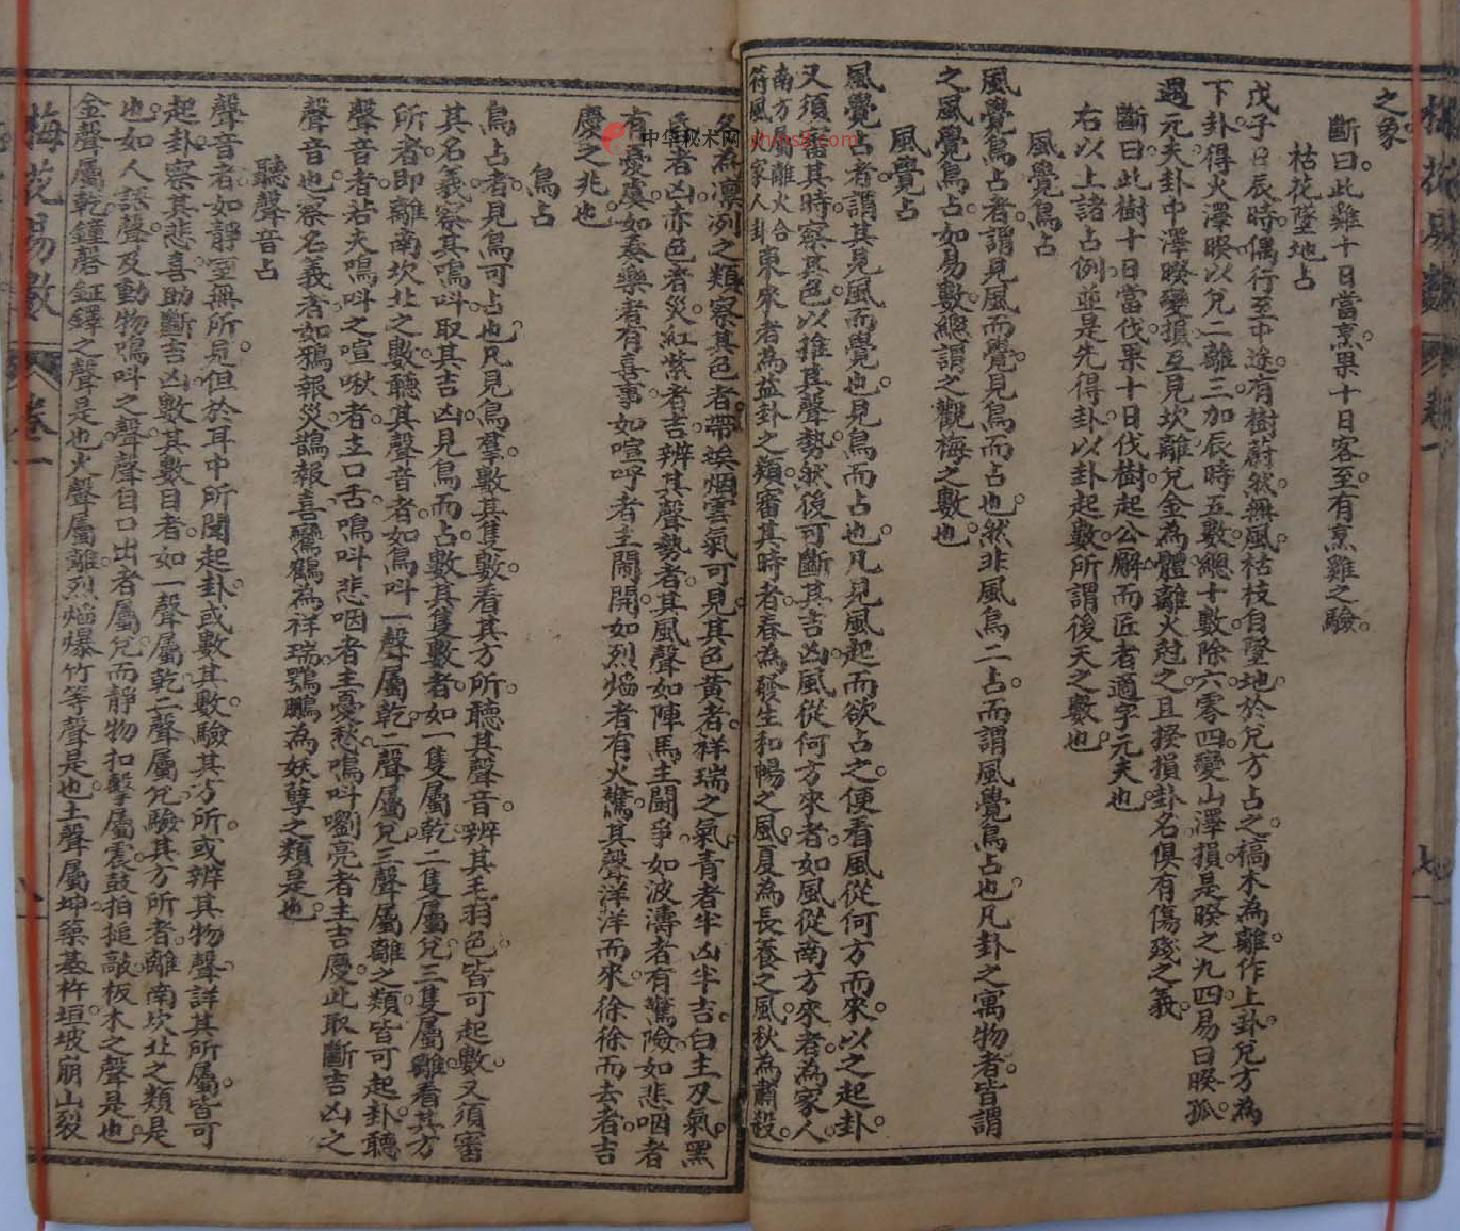 之象
斷曰此雞十日當烹果十日客至有烹雞之驗
枯花墜地占
戊子日辰時偶行至中途有樹蔚然無風枯枝自墜地於兌方占之槁木為離作上卦兌方為
下卦得火澤睽以兌二離三加辰時五數總十數除六零四變山澤損是睽之九四易曰睽孤
遇元夫卦中澤睽變損互見坎離兌金為體離火尅之且揆損卦名俱有傷殘之義
斷曰此樹十日當伐果十日伐樹起公廨而匠者適字元夫也
右以上諸占例並是先得卦以卦起數所謂後天之數也
風覺鳥占
風覺鳥占者謂見風而覺見鳥而占也然非風鳥二占而謂風覺鳥占也凡卦之寓物者皆謂
之風覺鳥占如易數總謂之觀梅之數也
風覺占
風覺占者謂其見風而覺也見鳥而占也凡見風起而欲占之便看風從何方而來以之起卦
又須審其時察其色以推其聲勢然後可斷其吉凶風從何方來者如風從南方來者為家人
南方屬離火合
符風為家人卦
東來者為益卦之類審其時者春為發生和暢之風夏為長養之風秋為肅殺
冬為凛冽之類察其色者帶埃烟雲氣可見其色黃者祥瑞之氣青者半凶半吉白主刃氣黑
昏者凶赤色者災紅紫者吉辨其聲勢者其風聲如陣馬主鬪爭如波濤者有驚險如悲咽者
有憂虞如奏樂者有喜事如喧呼者主鬧開如烈焰者有火驚其聲洋洋而來徐徐而去者吉
慶之兆也
鳥占
鳥占者見鳥可占也凡見鳥羣數其隻數看其方所聽其聲音辨其毛羽色皆可起數又須審
其名義察其鳴呌取其吉凶見鳥而占數其隻數者如一隻屬乾二隻屬兌三隻屬離看其方
所者即離南坎北之數聽其聲音者如鳥呌一聲屬乾二聲屬兌三聲屬離之類皆可起卦聽
聲音者若夫鳴呌之喧啾者主口舌鳴呌悲咽者主憂愁鳴呌嚠亮者主吉慶此取斷吉凶之
聲音也察名義者如鴉報災鵲報喜鸞鶴為祥瑞鶚鵬為妖孽之類是也
聽聲音占
聲音者如靜室無所見但於耳中所聞起卦或數其數驗其方所或辨其物聲詳其所屬皆可
起卦察其悲喜助斷吉凶數其數目者如一聲屬乾二聲屬兌驗其方所者離南坎北之類是
也如人語聲及動物鳴呌之聲聲自口出者屬兌而靜物扣擊屬震鼓拍搥敲板木之聲是也
金聲屬乾鐘磬鉦鐸之聲是也火聲屬離烈焰爆竹等聲是也土聲屬坤築基杵垣坡崩山裂
梅花易數
卷一
八
中华秘术网 zhms8.com